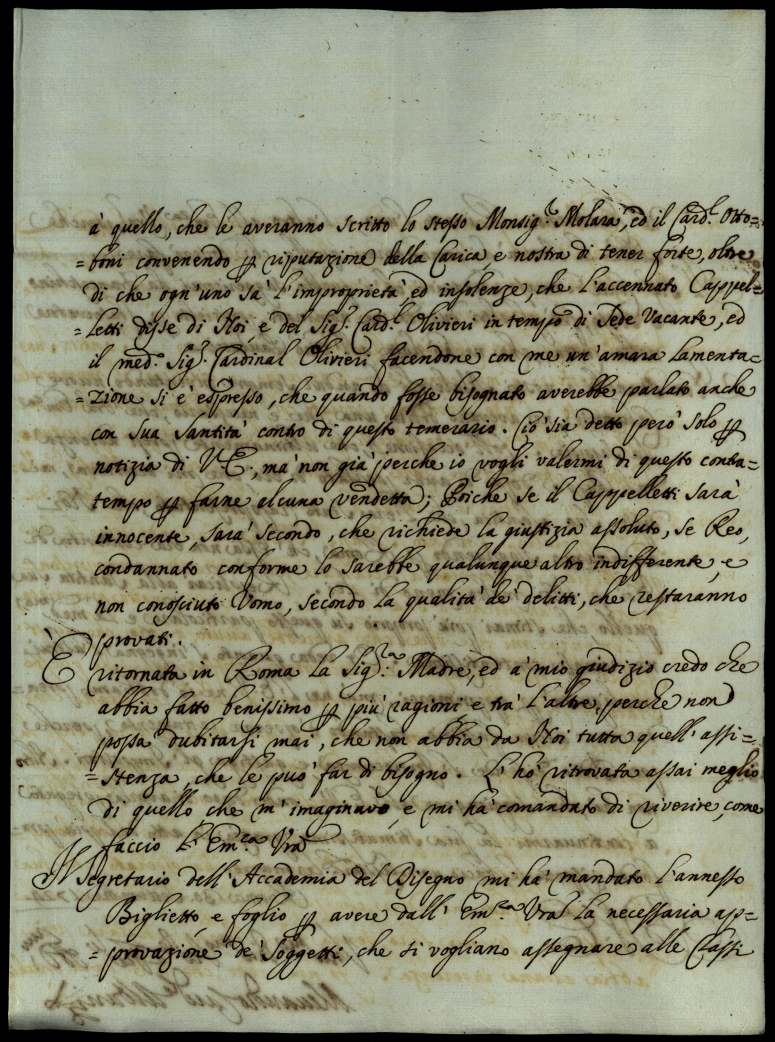 à quello, che le averanno scritto lo stesso Monsig.r Molara, ed il Card.l Otto=
=boni convenendo p riputazione della Carica e nostra di tener forte, oltre
di che ogn'uno sà l'improprietà, ed insolenze, che l'accennato Cappel=
=letti disse di Noi, e del Sig.r Card.l Olivieri in tempo di Sede Vacante, ed
il med.o Sig.r Cardinal Olivieri facendone con me un'amara lamenta=
=zione si è espresso, che quando fosse bisognato averebbe parlato anche
con Sua Santità contro di questo temerario. Ciò sia detto però solo p
notizia di V.E., mà non già perche io vogli valermi di questo conta=
tempo p farne alcuna vendetta; Poiche se il Cappelletti sarà
innocente, sarà secondo, che richiede la giustizia assoluto, se Reo,
condannato conforme lo sarebbe qualunque altro indifferente, e
non conosciuto Vomo, secondo la qualità de' delitti, che restaranno
provati.
È ritornata in Roma la Sig.ra Madre, ed à mio giudizio credo che
abbia fatto benissimo p più ragioni e trà l'altre, perche non
possa dubitarsi mai, che non abbia da Noi tutta quell'assi=
=stenza, che le può far di bisogno. L'hò ritrovata assai meglio
di quello che m'imaginavo, e mi hà comandato di riverire, come
faccio l'Em.za Vra
Il Segretario dell'Accademia del Disegno mi hà mandato l'annesso
Biglietto e foglio p avere dall'Em.za Vra la necessaria ap=
=provazione de' Soggetti, che si vogliano assegnare alle Classi